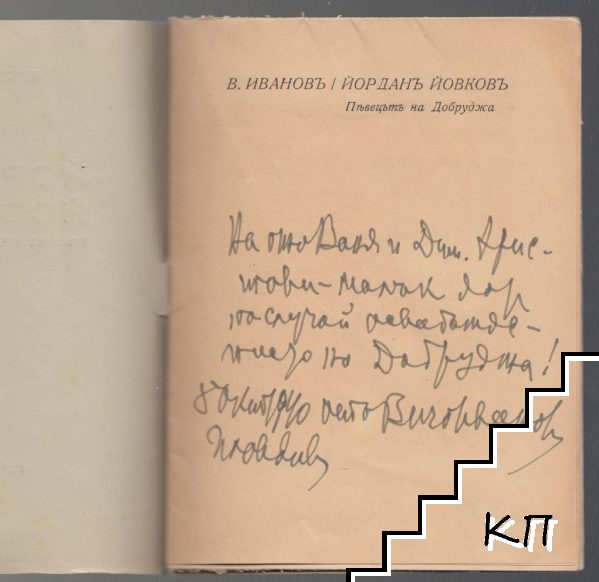 В. ИВАНОВЪ / ЙОРДАНЪ ЙОВКОВЪ
Пѣвецътъ на Добруджа
На Ваня и Дим. Хрис-
тови - малък дар
по случай освобожде-
нието на Добруджа!
8 окт 940 Виктор Иванов
Пловдив
КП